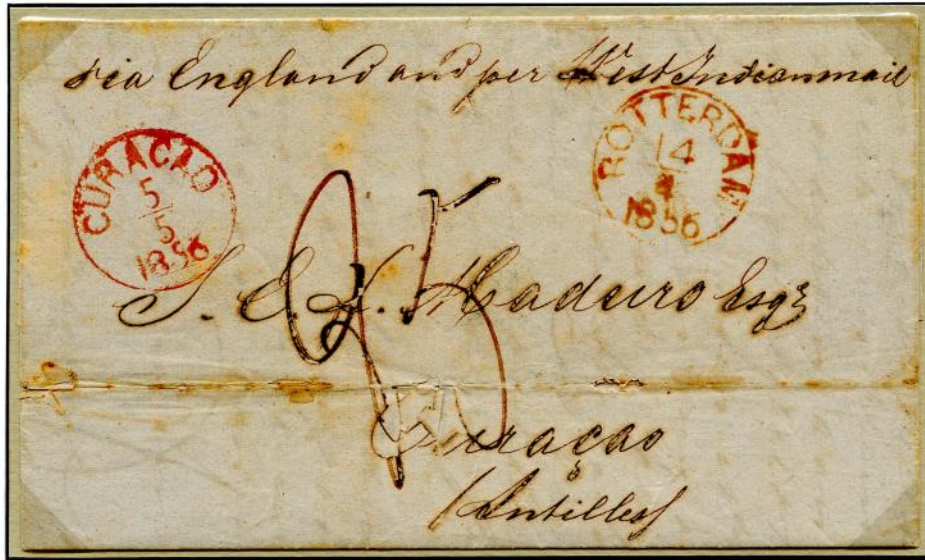 via England and per West Indian mail
CURAÇAO
5
5
1856
ROTTERDAM
14
4
1856
95
S. E. L. Maduro Esqr
Curaçao
(Antilles)